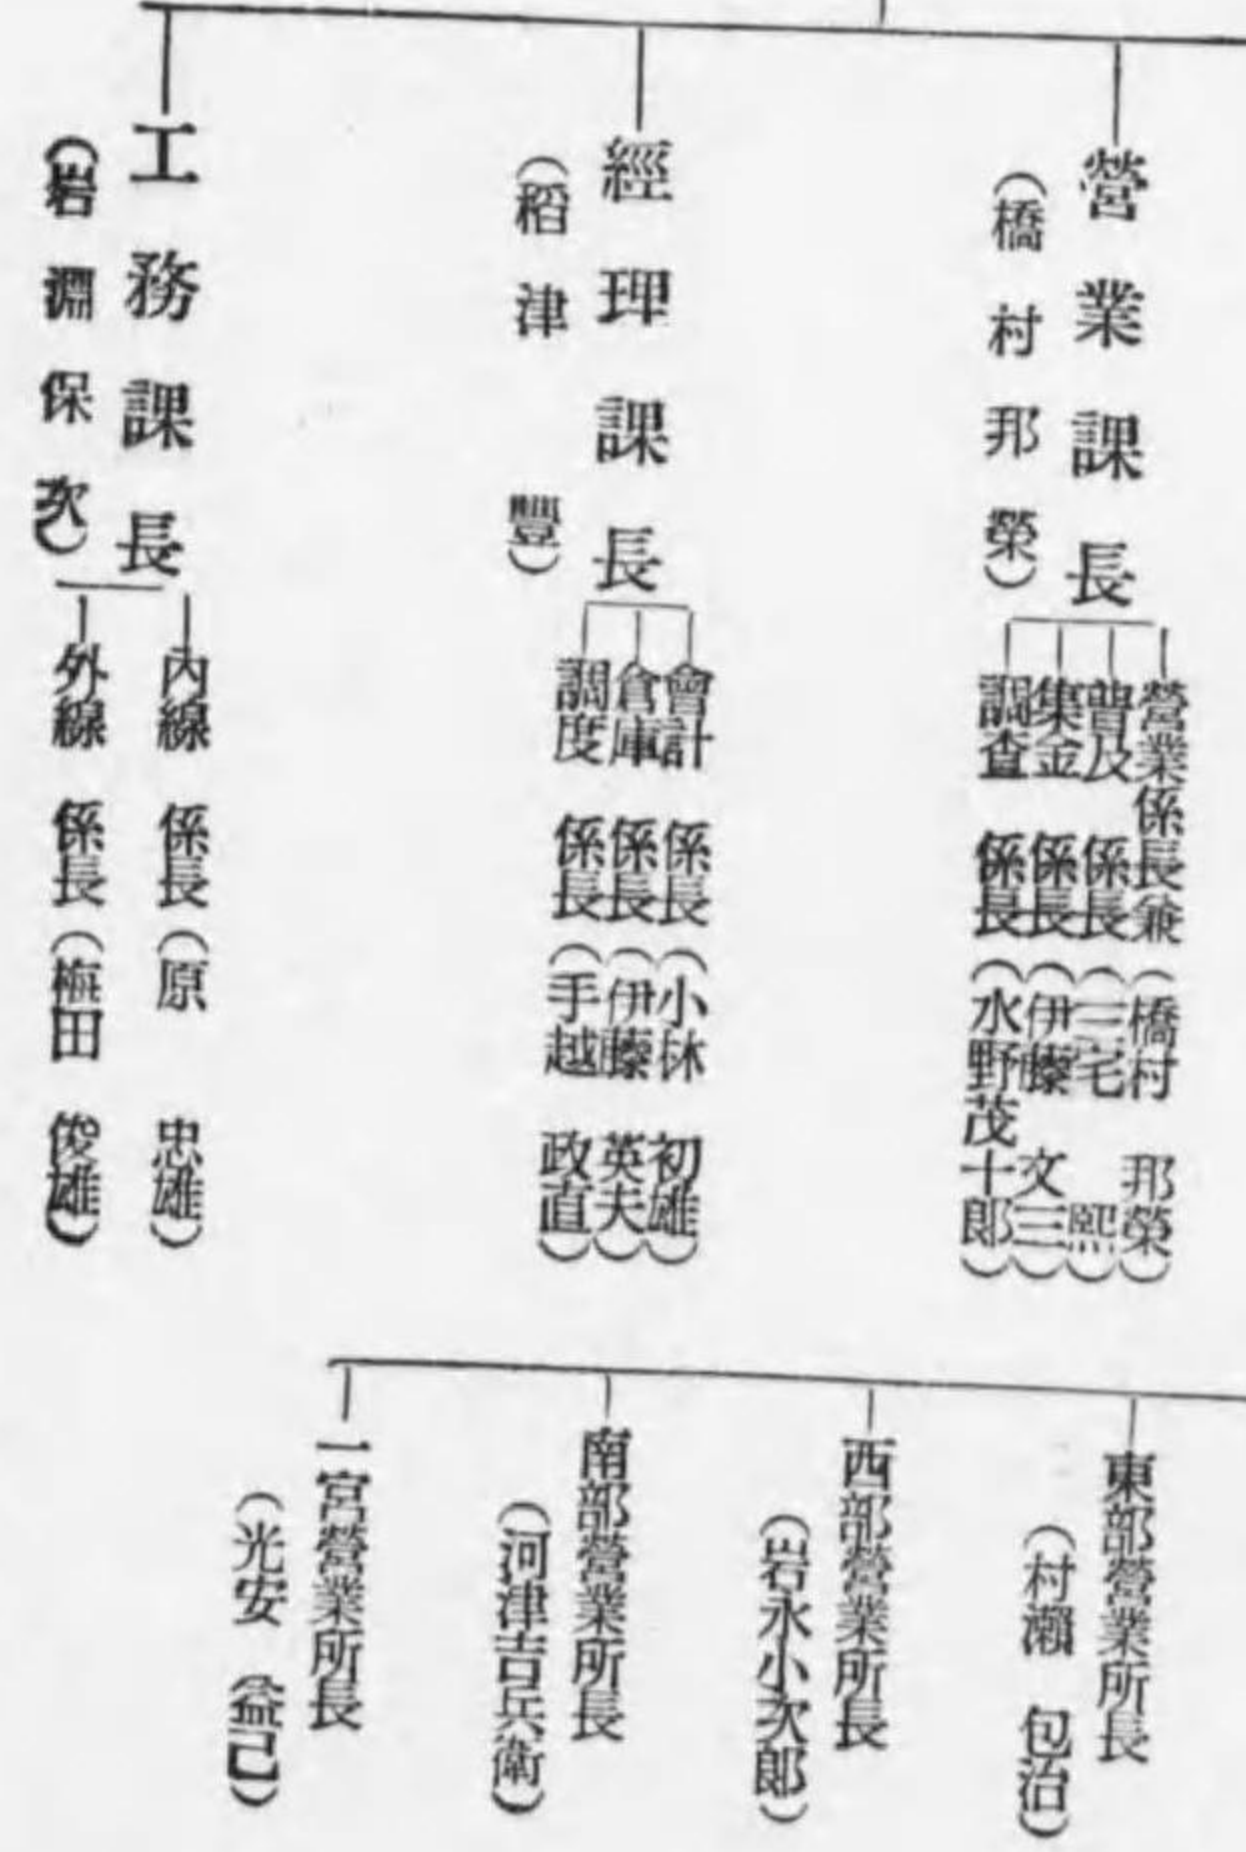 營業課長
（橋村邦榮）
營業係長兼（橋村 邦榮）
普及 係長（三宅 熙）
集金 係長（伊藤 文三）
調査 係長（水野茂十郎）
經理課長
（稻津 豐）
會計 係長（小林 初雄）
倉庫 係長（伊藤 英夫）
調度 係長（手越 政直）
工務課長
（岩淵保次）
內線 係長（原 忠雄）
外線 係長（梅田 俊雄）
東部營業所長
（村瀨 包治）
西部營業所長
（岩永小次郞）
南部營業所長
（河津吉兵衞）
一宮營業所長
（光安 益己）